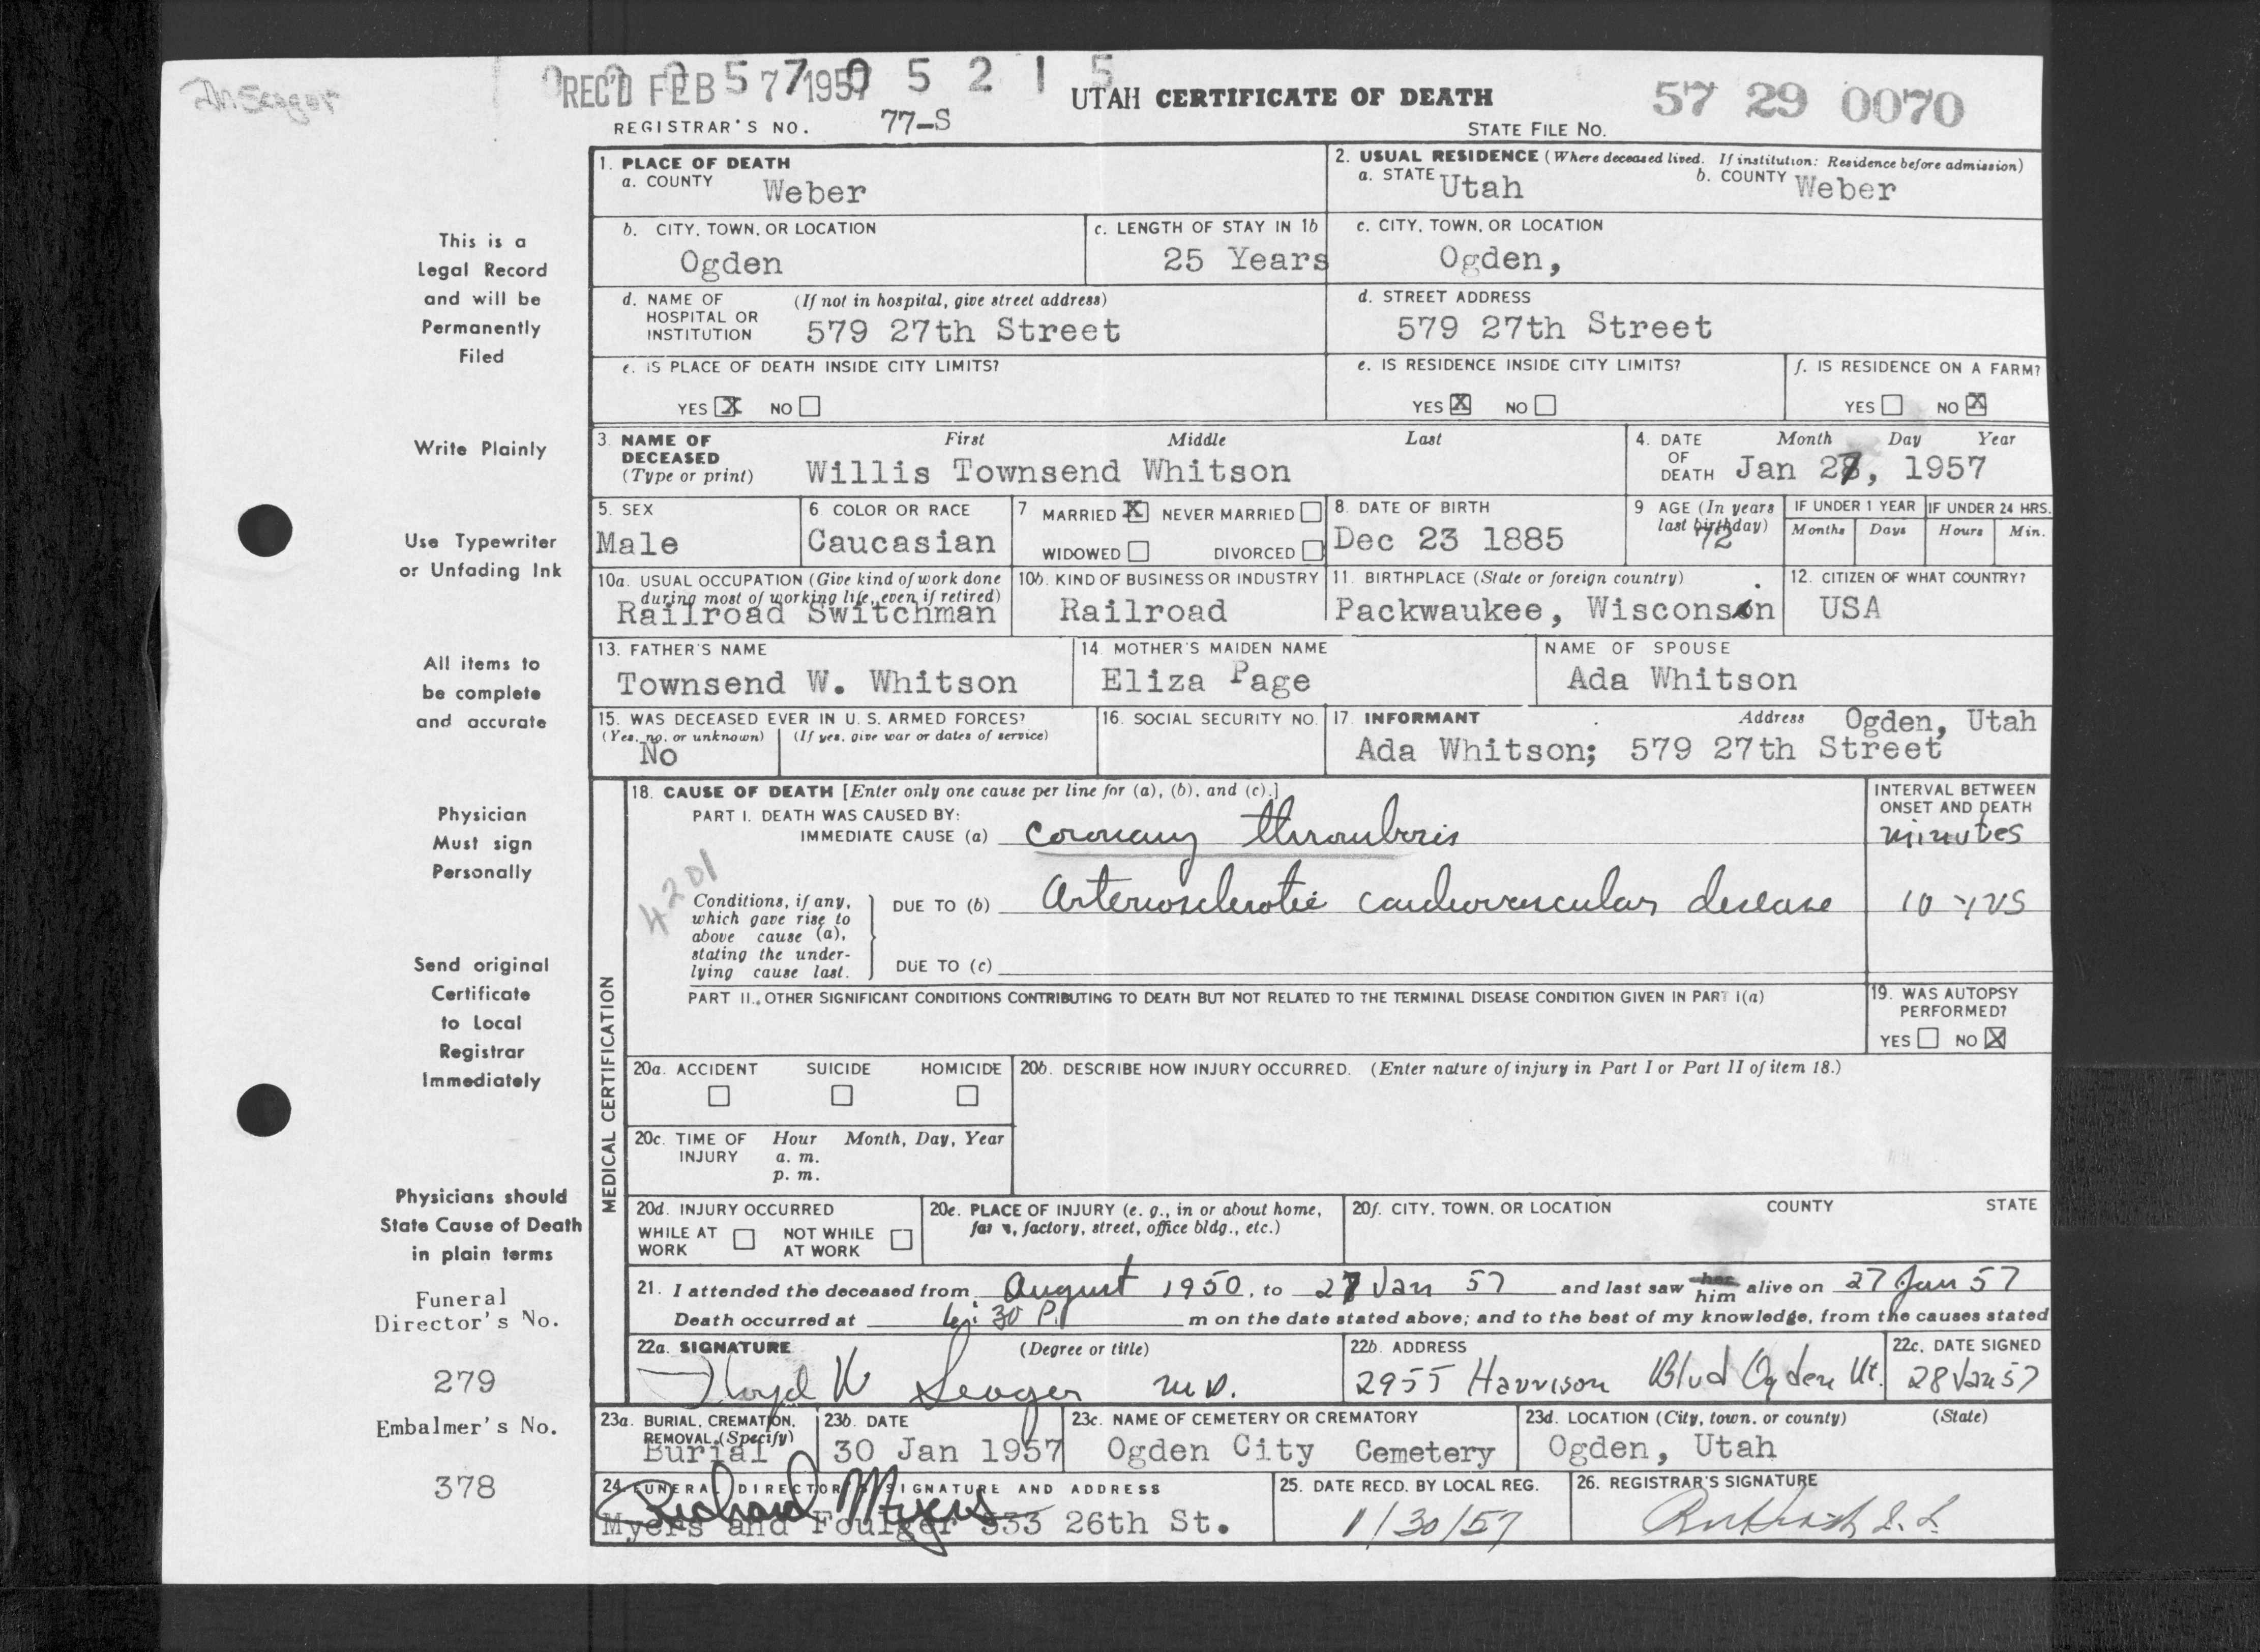 Dr Seager
REC'D FEB 7 1957
57 0 5 2 1 5
UTAH CERTIFICATE OF DEATH
57 29 0070
REGISTRAR'S NO. 77-S
STATE FILE No.
This is a
Legal Record
and will be
Permanently
Filed
Write Plainly
Use Typewriter
or Unfading Ink
All items to
be complete
and accurate
Physician
Must sign
Personally
Send original
Certificate
to Local
Registrar
Immediately
Physicians should
State Cause of Death
in plain terms
Funeral
Director's No.
279
Embalmer's No.
378
1. PLACE OF DEATH
a. COUNTY Weber
2. USUAL RESIDENCE (Where deceased lived. If institution: Residence before admission)
a. STATE Utah b. COUNTY Weber
b. CITY, TOWN, OR LOCATION
Ogden
c. LENGTH OF STAY IN 1b
25 Years
c. CITY, TOWN, OR LOCATION
Ogden,
d. NAME OF (If not in hospital, give street address)
HOSPITAL OR
INSTITUTION 579 27th Street
d. STREET ADDRESS
579 27th Street
e. IS PLACE OF DEATH INSIDE CITY LIMITS?
YES X NO
e. IS RESIDENCE INSIDE CITY LIMITS?
YES X NO
f. IS RESIDENCE ON A FARM?
YES NO X
3. NAME OF DECEASED First Middle Last
(Type or print) Willis Townsend Whitson
4. DATE OF DEATH Month Day Year
Jan 27, 1957
5. SEX
Male
6. COLOR OR RACE
Caucasian
7 MARRIED X NEVER MARRIED
WIDOWED DIVORCED
8. DATE OF BIRTH
Dec 23 1885
9 AGE (In years
last birthday)
72
IF UNDER 1 YEAR
Months Days
IF UNDER 24 HRS.
Hours Min.
10a. USUAL OCCUPATION (Give kind of work done
during most of working life, even if retired)
Railroad Switchman
10b. KIND OF BUSINESS OR INDUSTRY
Railroad
11. BIRTHPLACE (State or foreign country)
Packwaukee, Wisconsin
12. CITIZEN OF WHAT COUNTRY?
USA
13. FATHER'S NAME
Townsend W. Whitson
14. MOTHER'S MAIDEN NAME
Eliza Page
NAME OF SPOUSE
Ada Whitson
15. WAS DECEASED EVER IN U. S. ARMED FORCES?
(Yes, no, or unknown) (If yes, give war or dates of service)
No
16. SOCIAL SECURITY NO.
17. INFORMANT Address Ogden, Utah
Ada Whitson; 579 27th Street
MEDICAL CERTIFICATION
18. CAUSE OF DEATH [Enter only one cause per line for (a), (b), and (c).]
PART I. DEATH WAS CAUSED BY:
IMMEDIATE CAUSE (a) Coronary thrombosis
INTERVAL BETWEEN
ONSET AND DEATH
minutes
4201
Conditions, if any,
which gave rise to
above cause (a),
stating the under-
lying cause last.
DUE TO (b) Arteriosclerotic cardiovascular disease
10 yrs
DUE TO (c)
PART II. OTHER SIGNIFICANT CONDITIONS CONTRIBUTING TO DEATH BUT NOT RELATED TO THE TERMINAL DISEASE CONDITION GIVEN IN PART I(a)
19. WAS AUTOPSY
PERFORMED?
YES NO X
20a. ACCIDENT SUICIDE HOMICIDE
20b. DESCRIBE HOW INJURY OCCURRED. (Enter nature of injury in Part I or Part II of item 18.)
20c. TIME OF Hour Month, Day, Year
INJURY a. m.
p. m.
20d. INJURY OCCURRED
WHILE AT WORK NOT WHILE AT WORK
20e. PLACE OF INJURY (e. g., in or about home,
farm, factory, street, office bldg., etc.)
20f. CITY, TOWN, OR LOCATION COUNTY STATE
21. I attended the deceased from August 1950, to 27 Jan 57 and last saw her him alive on 27 Jan 57
Death occurred at 6:30 P. m on the date stated above; and to the best of my knowledge, from the causes stated
22a. SIGNATURE (Degree or title)
Floyd W Seager M.D.
22b. ADDRESS
2955 Harrison Blvd Ogden Ut.
22c. DATE SIGNED
28 Jan 57
23a. BURIAL, CREMATION,
REMOVAL (Specify)
Burial
23b. DATE
30 Jan 1957
23c. NAME OF CEMETERY OR CREMATORY
Ogden City Cemetery
23d. LOCATION (City, town, or county) (State)
Ogden, Utah
24. FUNERAL DIRECTOR'S SIGNATURE AND ADDRESS
Richard Myers
Myers and Foulger 533 26th St.
25. DATE RECD. BY LOCAL REG.
1/30/57
26. REGISTRAR'S SIGNATURE